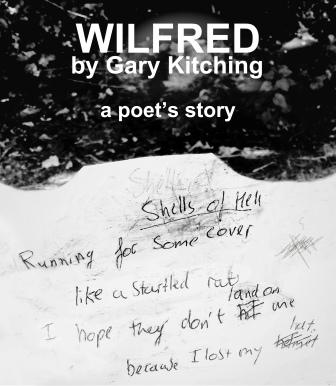 WILFRED
by Gary Kitching
a poet's story
Shells of
Shells of Hell
Running for some cover
like a startled rat
land on
I hope they don't hit me
hat.
because I lost my helmet